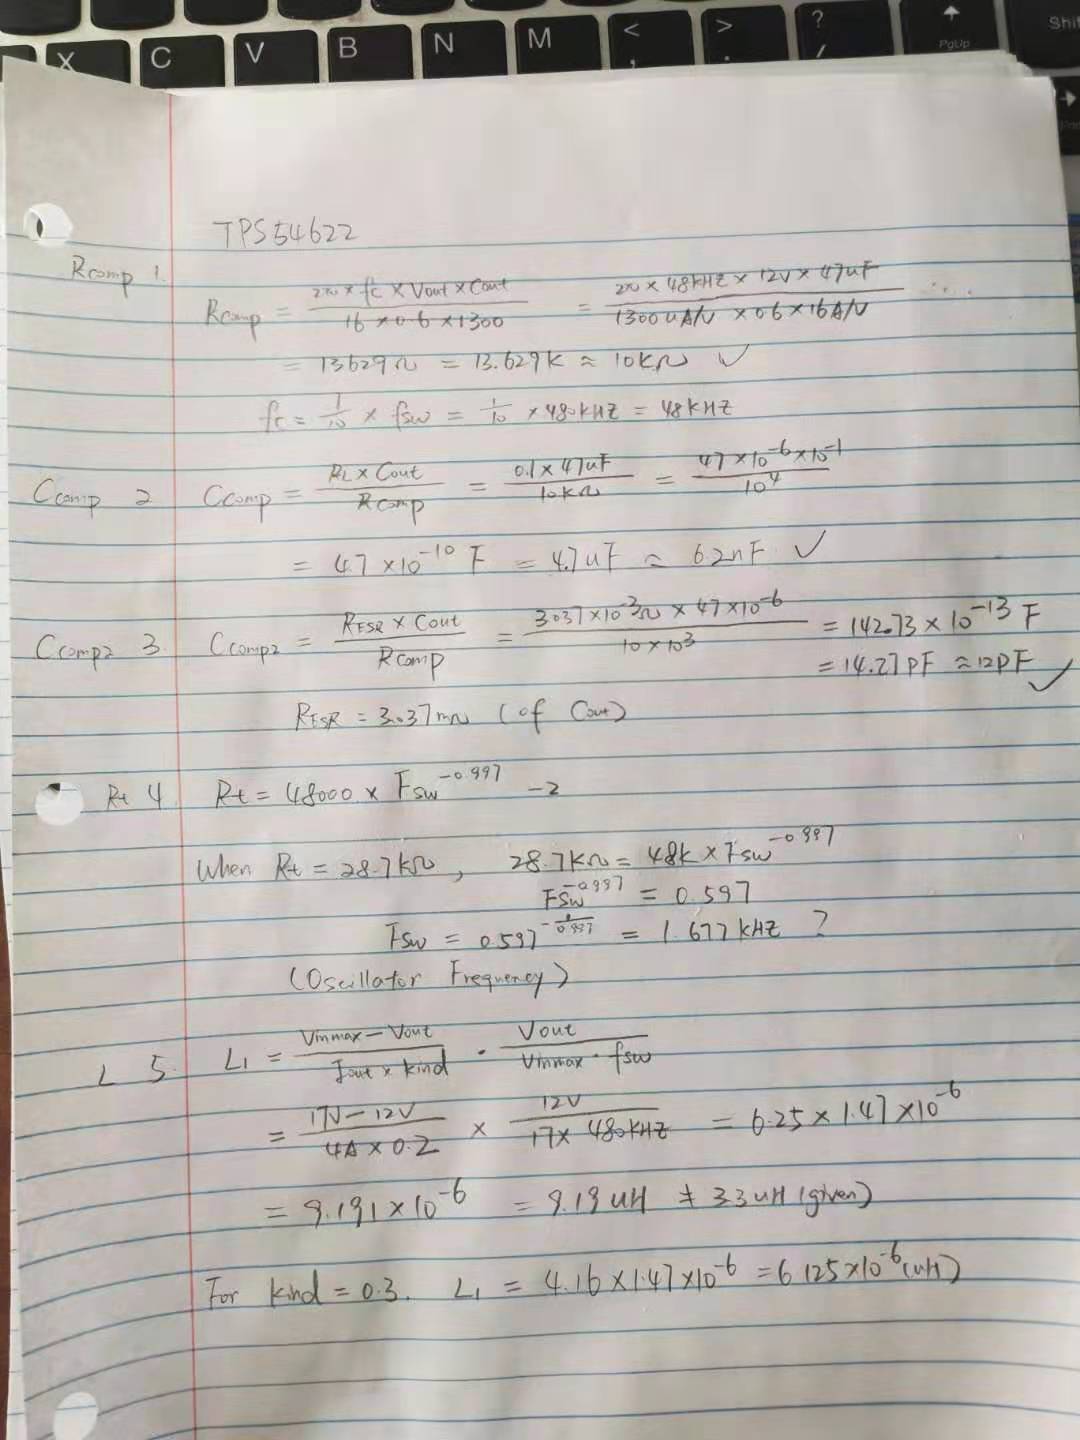 X C V B N M < , > . ? / PgUp Shif
TPS54622
Rcomp 1.
Rcomp = 2π × fc × Vout × Cout / 16 × 0.6 × 1300 = 2π × 48kHz × 12V × 47uF / 1300uA/V × 0.6 × 16A/V
= 13629Ω = 13.629k ≈ 10kΩ ✓
fc = 1/10 × fsw = 1/10 × 480kHz = 48kHz
Ccomp 2 Ccomp = RL × Cout / Rcomp = 0.1 × 47uF / 10kΩ = 47 × 10^-6 × 10^-1 / 10^4
= 4.7 × 10^-10 F = 4.7uF ≈ 6.2nF ✓
Ccomp2 3 Ccomp2 = RESR × Cout / Rcomp = 3.037 × 10^-3Ω × 47 × 10^-6 / 10 × 10^3 = 142.73 × 10^-13 F
= 14.27PF ≈ 12PF ✓
RESR = 3.037mΩ (of Cout)
Rt 4 Rt = 48000 × Fsw^-0.997 - 2
When Rt = 28.7kΩ, 28.7kΩ = 48k × Fsw^-0.997
Fsw^-0.997 = 0.597
Fsw = 0.597^-1/0.997 = 1.677kHz ?
(Oscillator Frequency)
L 5. L1 = Vinmax - Vout / Iout × kind · Vout / Vinmax · fsw
= 17V - 12V / 4A × 0.2 × 12V / 17 × 480kHz = 6.25 × 1.47 × 10^-6
= 9.191 × 10^-6 = 9.19uH ≠ 3.3uH (given)
For kind = 0.3. L1 = 4.16 × 1.47 × 10^-6 = 6.125 × 10^-6 (uH)